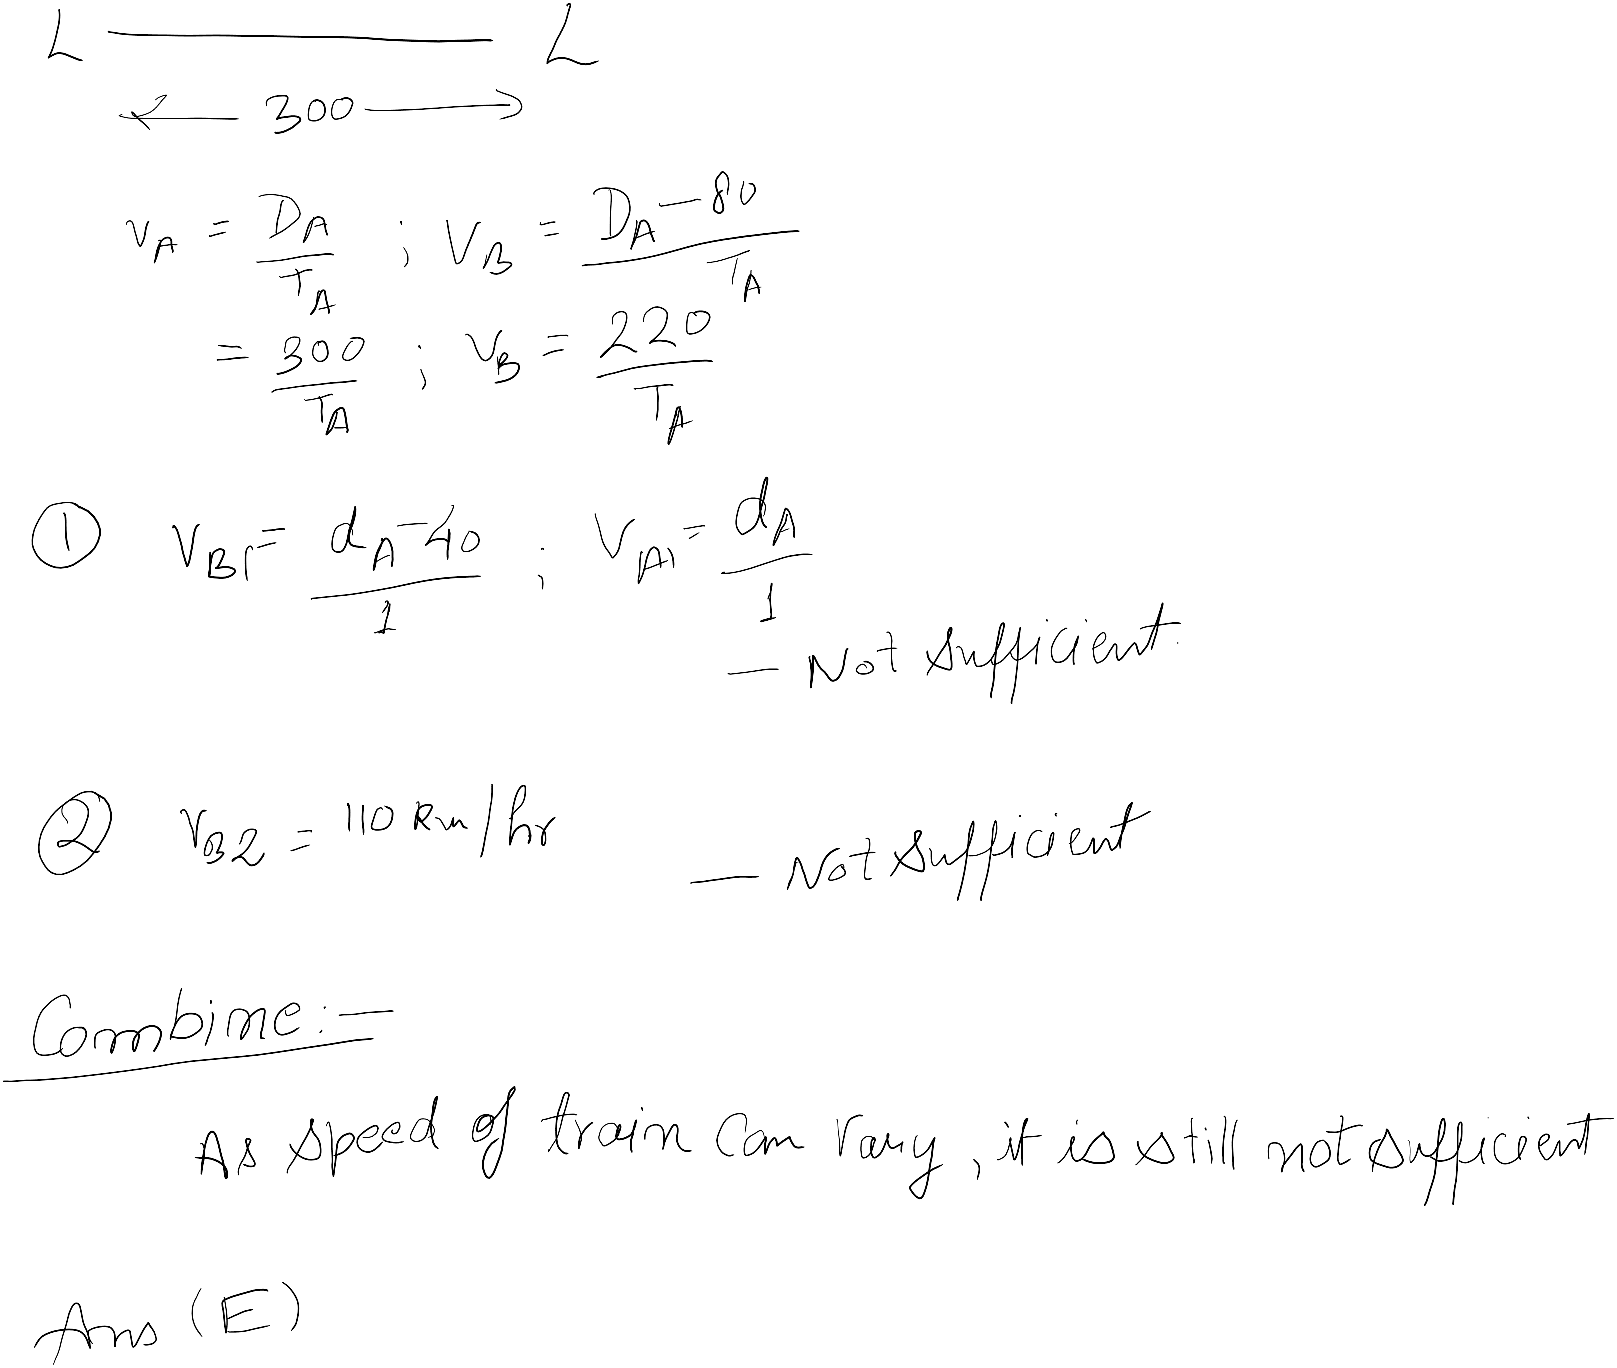 L ——— L
← 300 →
V_A = D_A / T_A ; V_B = (D_A - 80) / T_A
= 300 / T_A ; V_B = 220 / T_A
① V_B1 = (d_A - 40) / 1 ; V_A1 = d_A / 1
— Not sufficient.
② V_B2 = 110 km/hr
— Not sufficient
Combine:-
As speed of train can vary, it is still not sufficient
Ans (E)